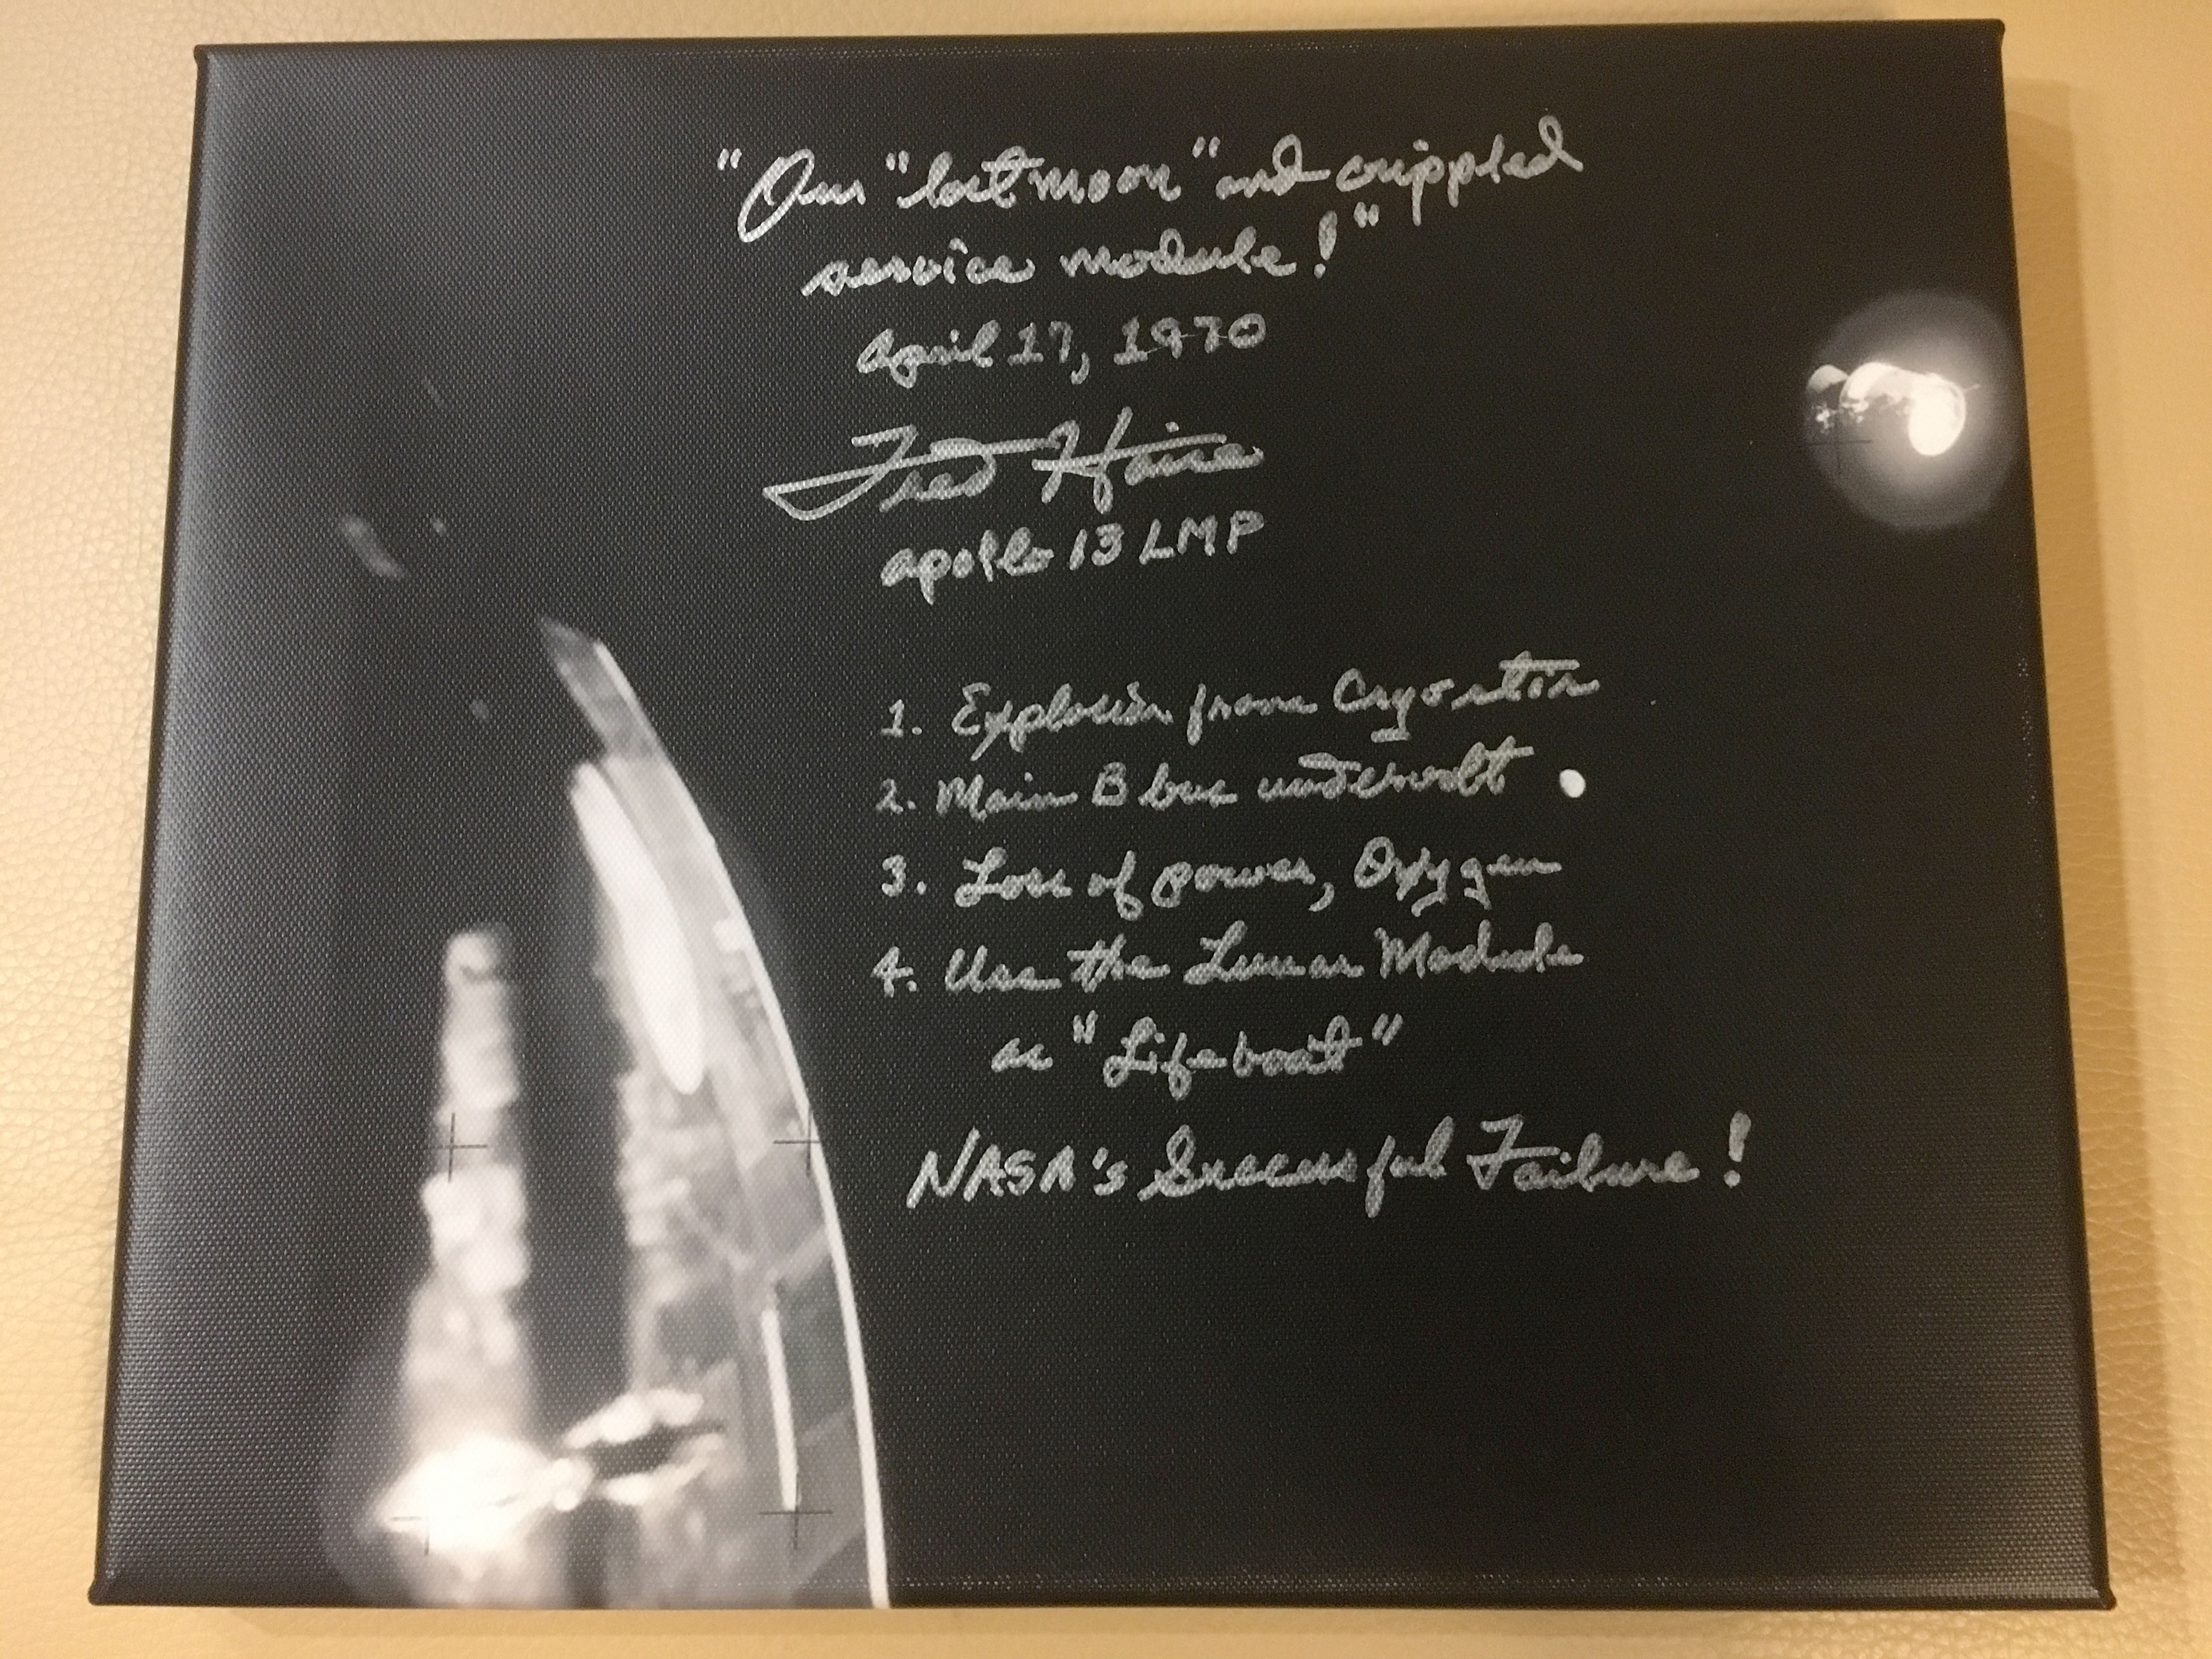 "Our "lost moon" and crippled
service module!"
April 17, 1970
Fred Haise
Apollo 13 LMP
1. Explosion from Cryo stir
2. Main B bus undervolt
3. Loss of power, Oxygen
4. Use the Lunar Module
as "Lifeboat"
NASA's Successful Failure!